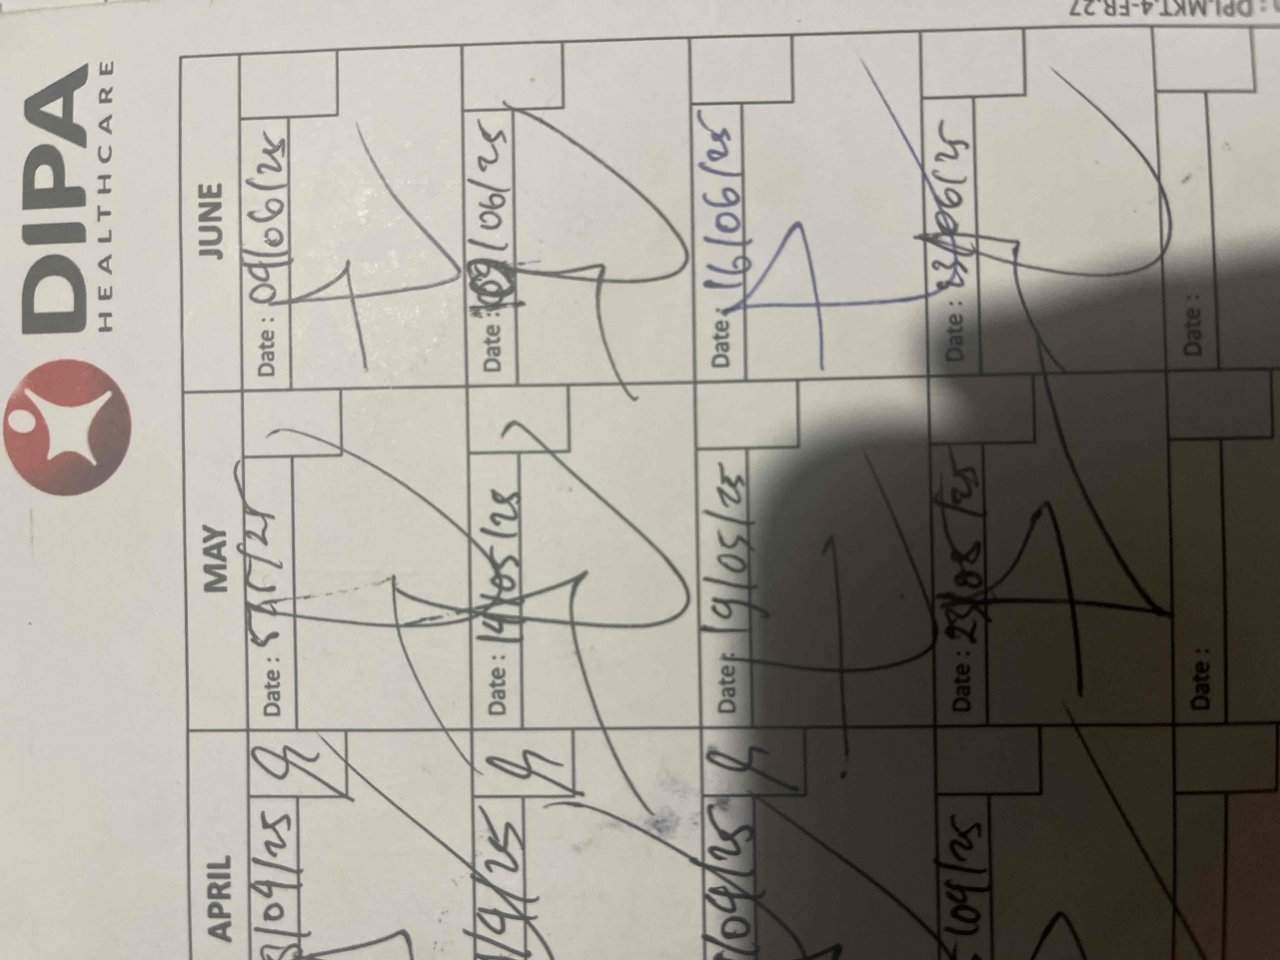 DIPA
HEALTHCARE
: DPI.MKT.4-FR.27
APRIL
MAY
JUNE
/04/25
Date : 5/5/25
Date : 09/06/25
/4/25
Date : 14/05/25
Date : /06/25
/04/25
Date : 19/05/25
Date : 16/06/25
/04/25
Date : /05/25
Date : 23/06/25
Date :
Date :